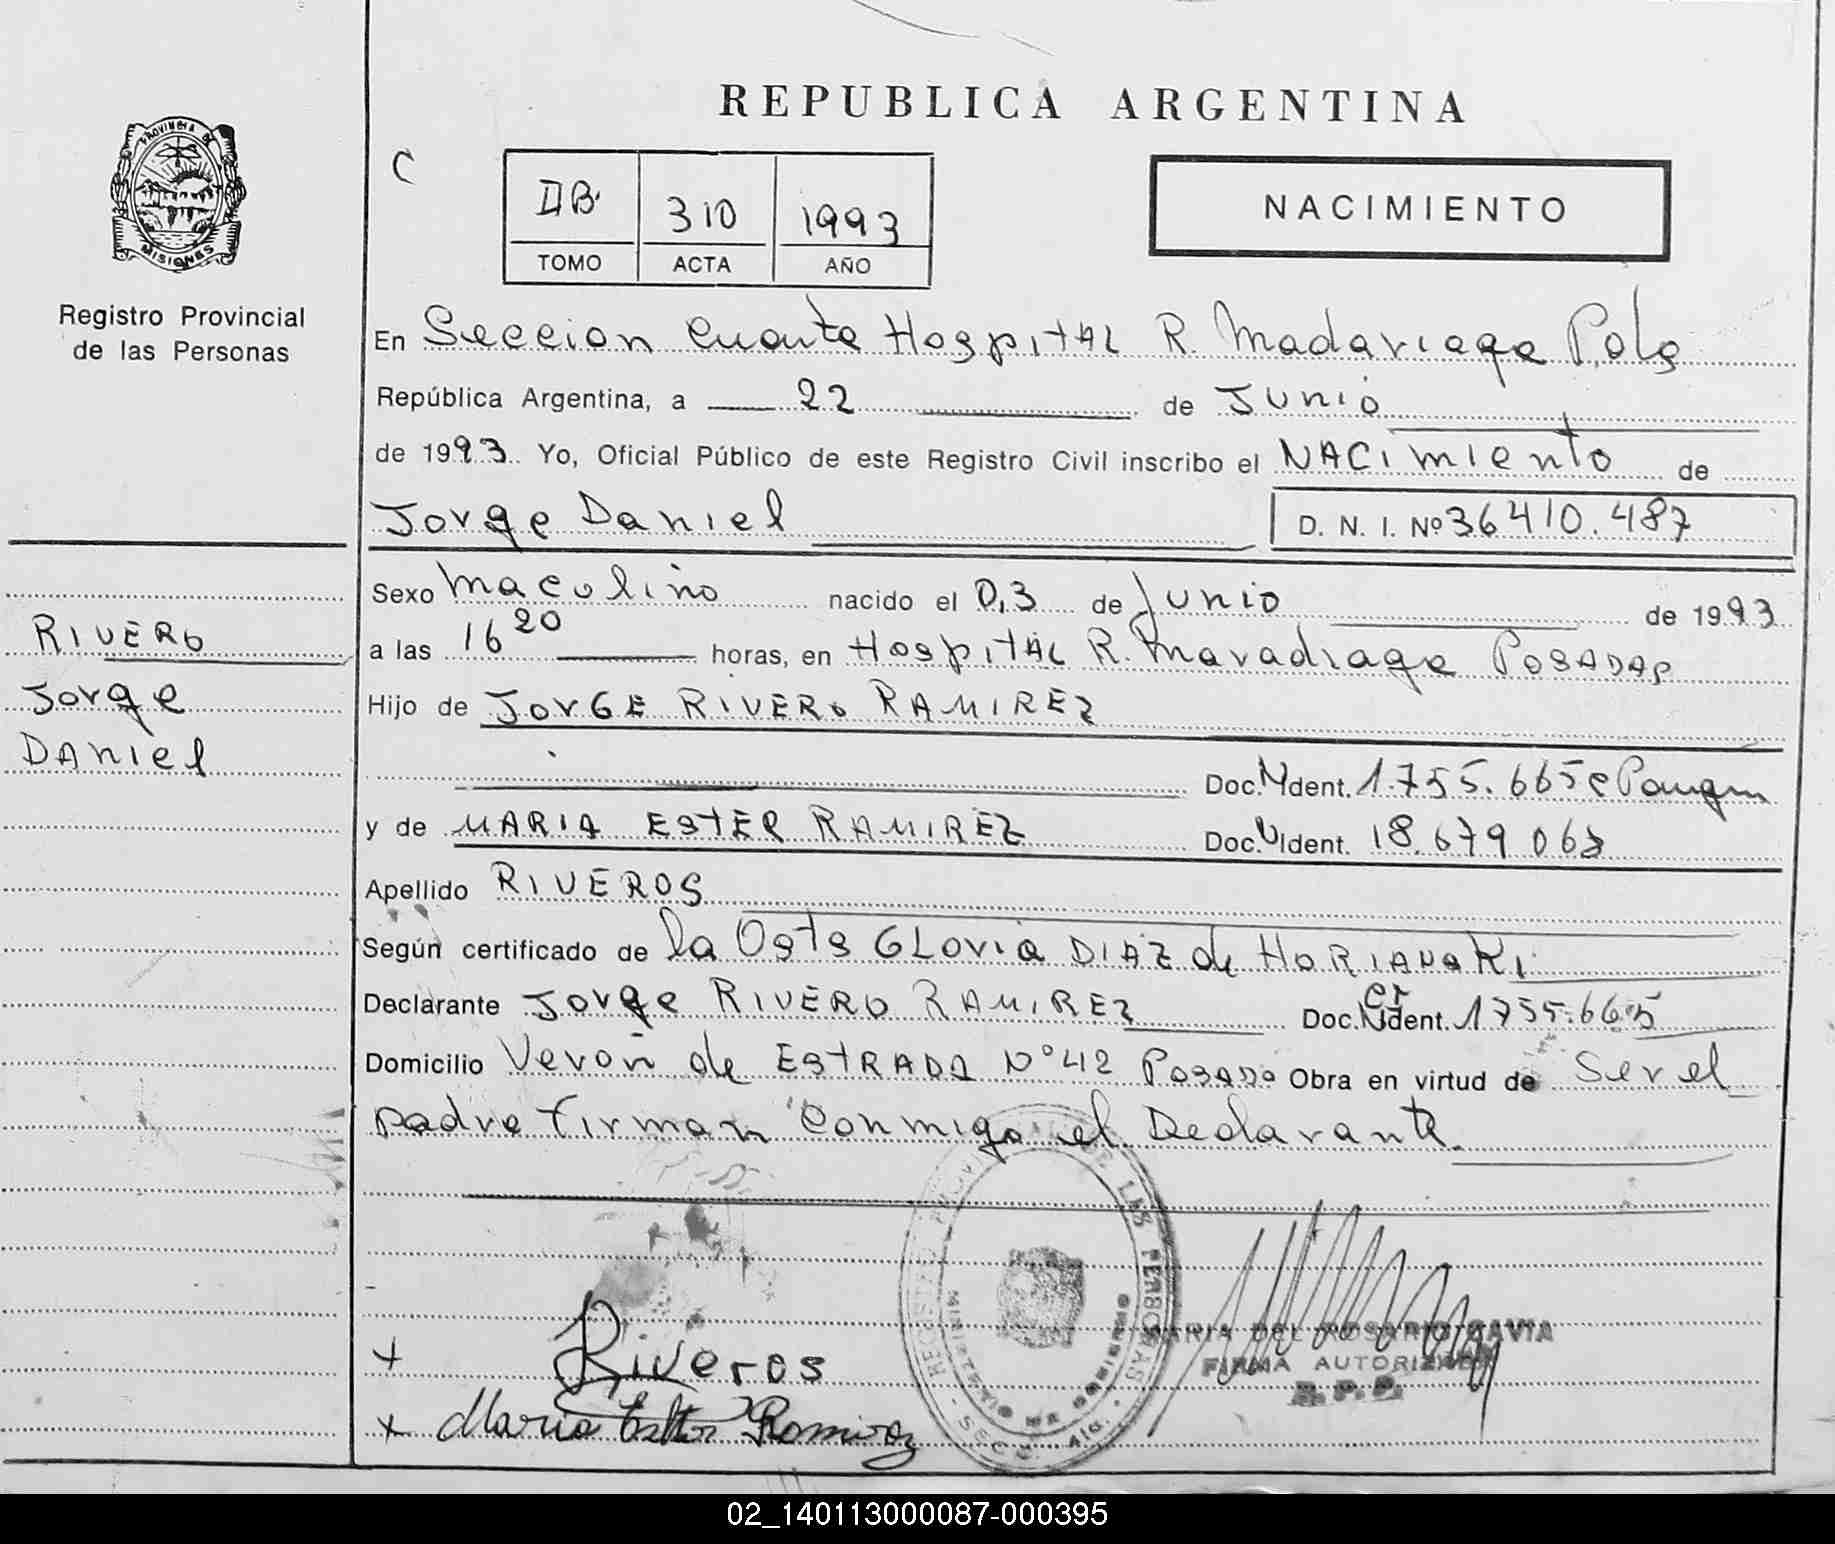 REPUBLICA ARGENTINA
PROVINCIA DE
MISIONES
Registro Provincial
de las Personas
C
310 1993
TOMO ACTA AÑO
NACIMIENTO
En Seccion Cuarta Hospital R. Madariaga
República Argentina, a 22 de Junio
de 1993 Yo, Oficial Público de este Registro Civil inscribo el NACimiento de
Jorge Daniel D. N. I. Nº 36410.487
Sexo nacido el 03 de Junio de 1993
a las 16 20 horas, en Hospital R. Maradiaga POSADAS
Hijo de JORGE RIVERO RAMIREZ
Doc. Ident. 1.755.665
y de MARIA ESTER RAMIREZ Doc. Ident. 18.679.06
Apellido RIVEROS
Según certificado de la GLORIA DIAZ de
Declarante Jorge RIVERO RAMIREZ Doc. Ident. 1755.665
Domicilio Veron de ESTRADA Nº 42 Obra en virtud de Ser el
padre firman Conmigo el Declarante
RIVERO
Jorge
DANiel
+ Riveros
+ Maria Ester Ramirez
MARIA DEL ROSARIO GAVIA
FIRMA AUTORIZADA
R. P. P.
02_140113000087-000395